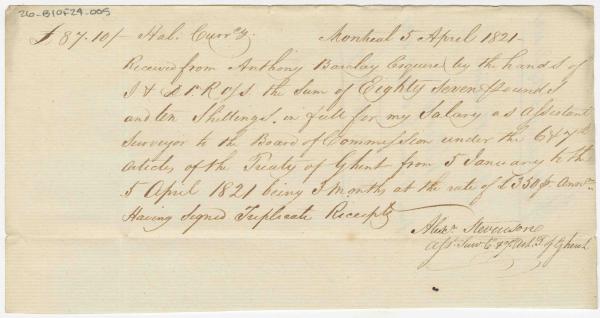 26-B10F24-005
£87.10/- Hal. Curr.cy. Montreal 5 April 1821-
Received from Anthony Barclay Esquire by the hands of
J & the sum of Eighty Seven Pounds
and ten Shillings, in full for my Salary as Assistant
Surveyor to the Board of Commission under the 6 & 7th
articles of the Treaty of Ghent from 5 January to the
5 April 1821 being 3 Months at the rate of £350 p Annum
Having Signed Triplicate Receipts
Alexr. Stevenson
Asst. Surv. 6 & 7 Art. T. of Ghent